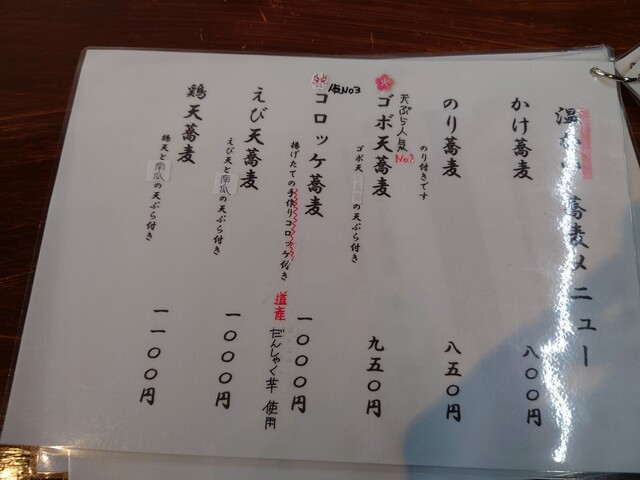 温かい蕎麦メニュー
かけ蕎麦
八〇〇円
のり蕎麦
のり付きです
八五〇円
天ぷら人気
No1
ゴボ天蕎麦
ゴボ天
の天ぷら付き
九五〇円
No3
コロッケ蕎麦
揚げたての手作りコロッケ付き
道産
だんしゃく芋使用
一〇〇〇円
えび天蕎麦
えび天と南瓜の天ぷら付き
一〇〇〇円
鶏天蕎麦
鶏天と南瓜の天ぷら付き
一一〇〇円